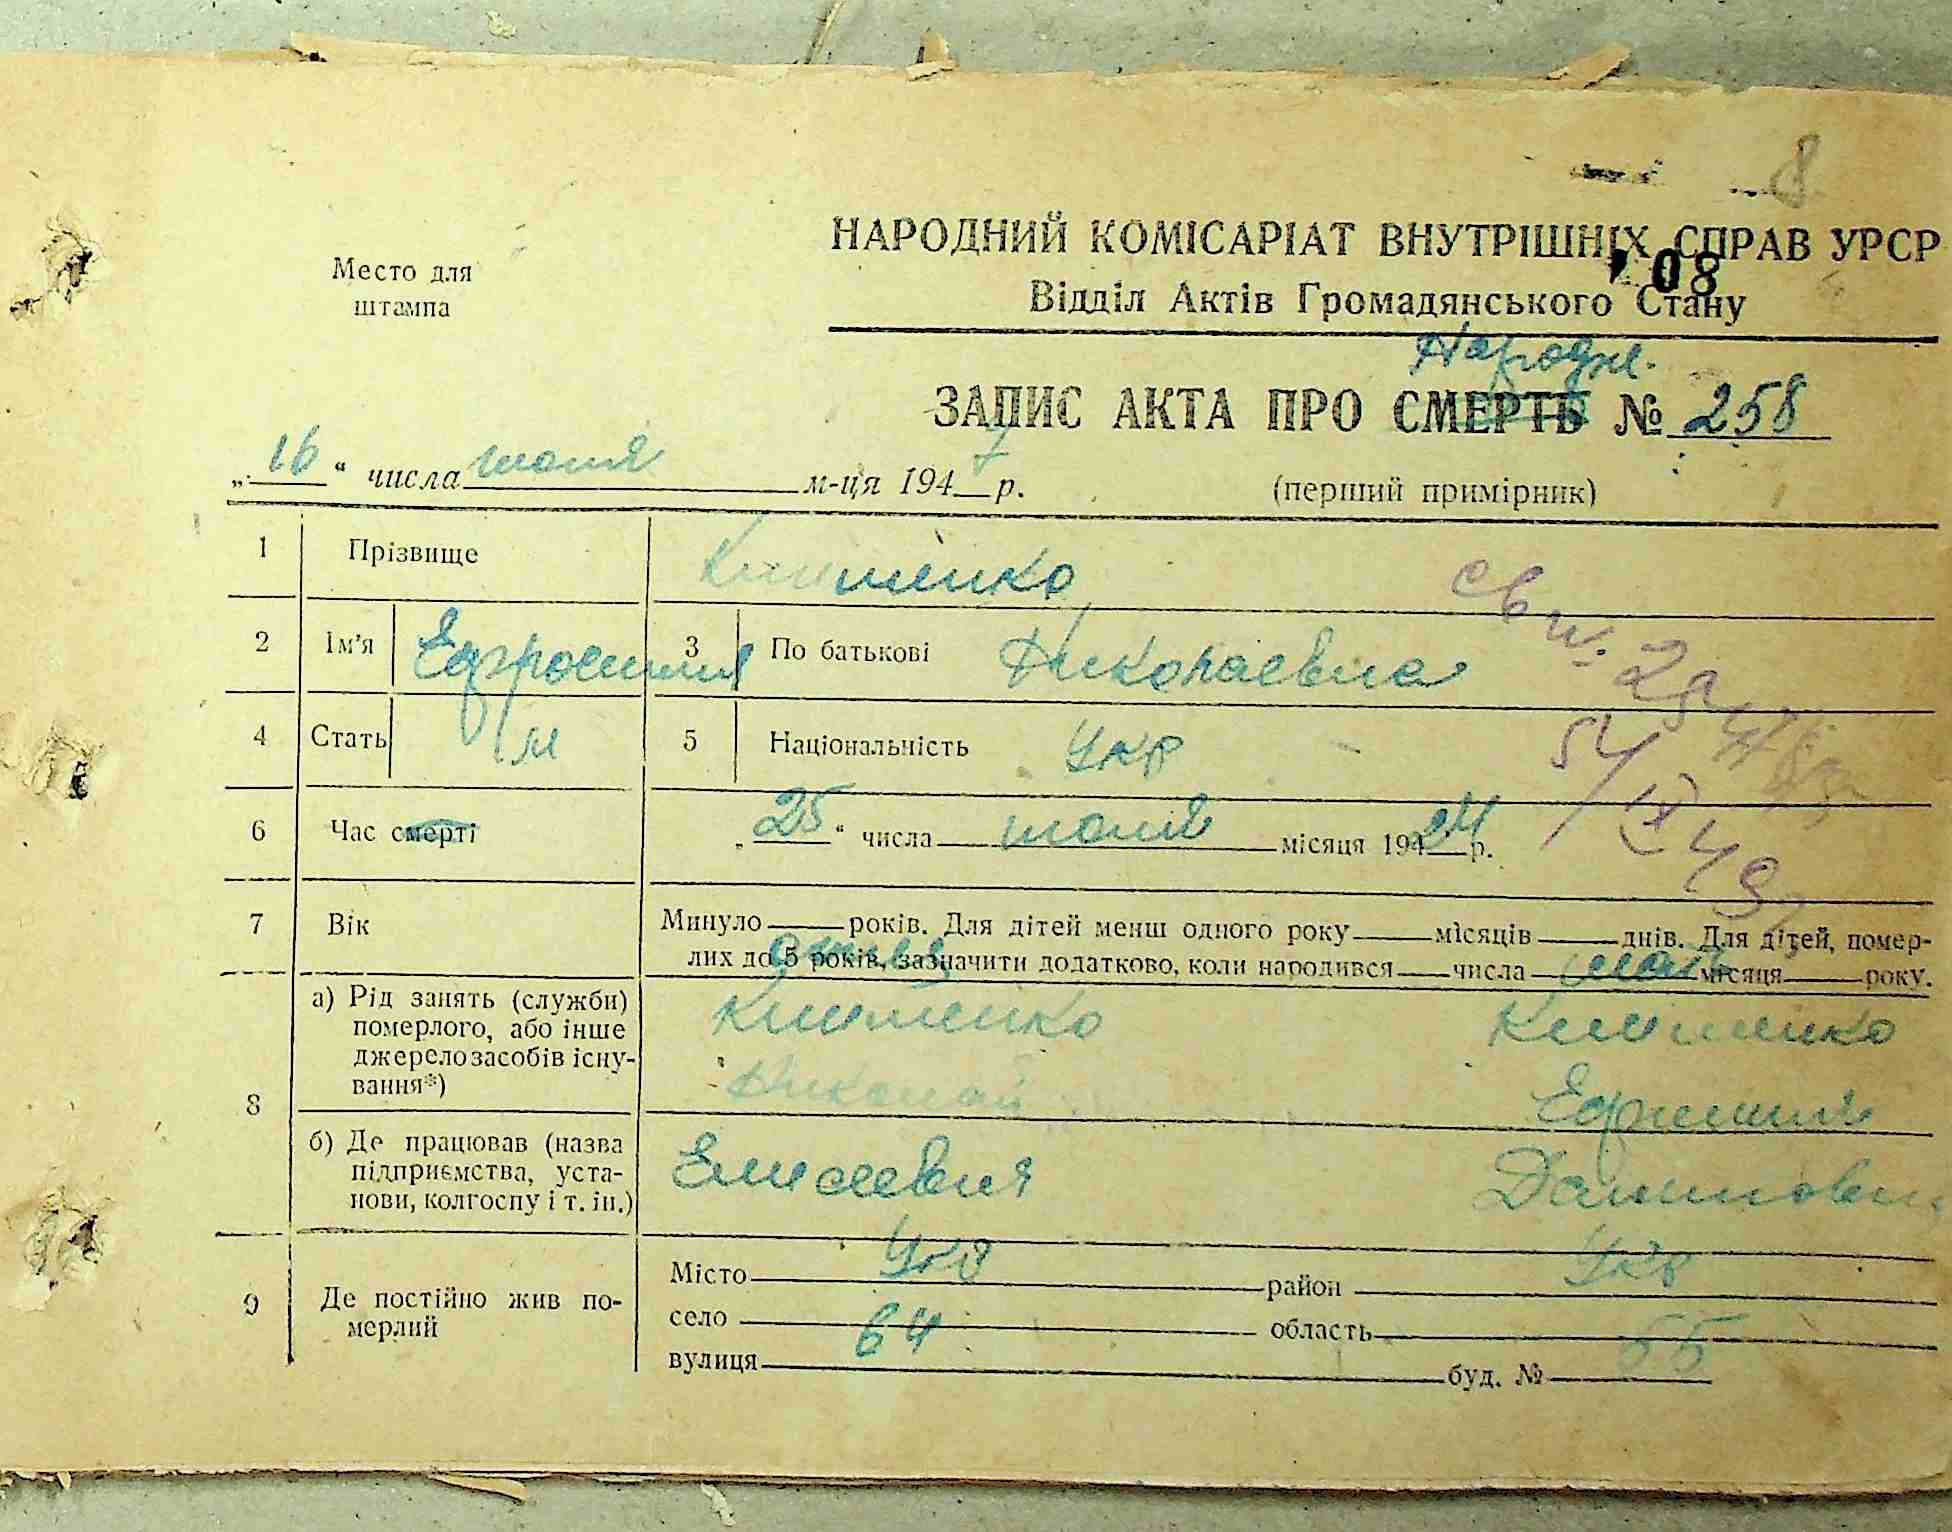 8
Место для
штампа
НАРОДНИЙ КОМІСАРІАТ ВНУТРІШНІХ СПРАВ УРСР
08
Відділ Актів Громадянського Стану
Народж.
ЗАПИС АКТА ПРО СМЕРТЬ № 258
„16“ числа июня м-ця 1947 р.
(перший примірник)
1 Прізвище
2 Ім'я Ефросиния 3 По батькові Николаевна
4 Стать 5 Національність Укр
6 Час смерті „25“ числа июня місяця 1924 р.
7 Вік Минуло років. Для дітей менш одного року місяців днів. Для дітей, помер-
лих до 5 років, зазначити додатково, коли народився числа місяця року.
мать
8 а) Рід занять (служби)
померлого, або інше
джерело засобів існу-
вання*)
Николай
б) Де працював (назва
підприємства, уста-
нови, колгоспу і т. ін.)
Елисеевич
9 Де постійно жив по-
мерлий
Місто Укр район Укр
село 64 область 55
вулиця буд. №